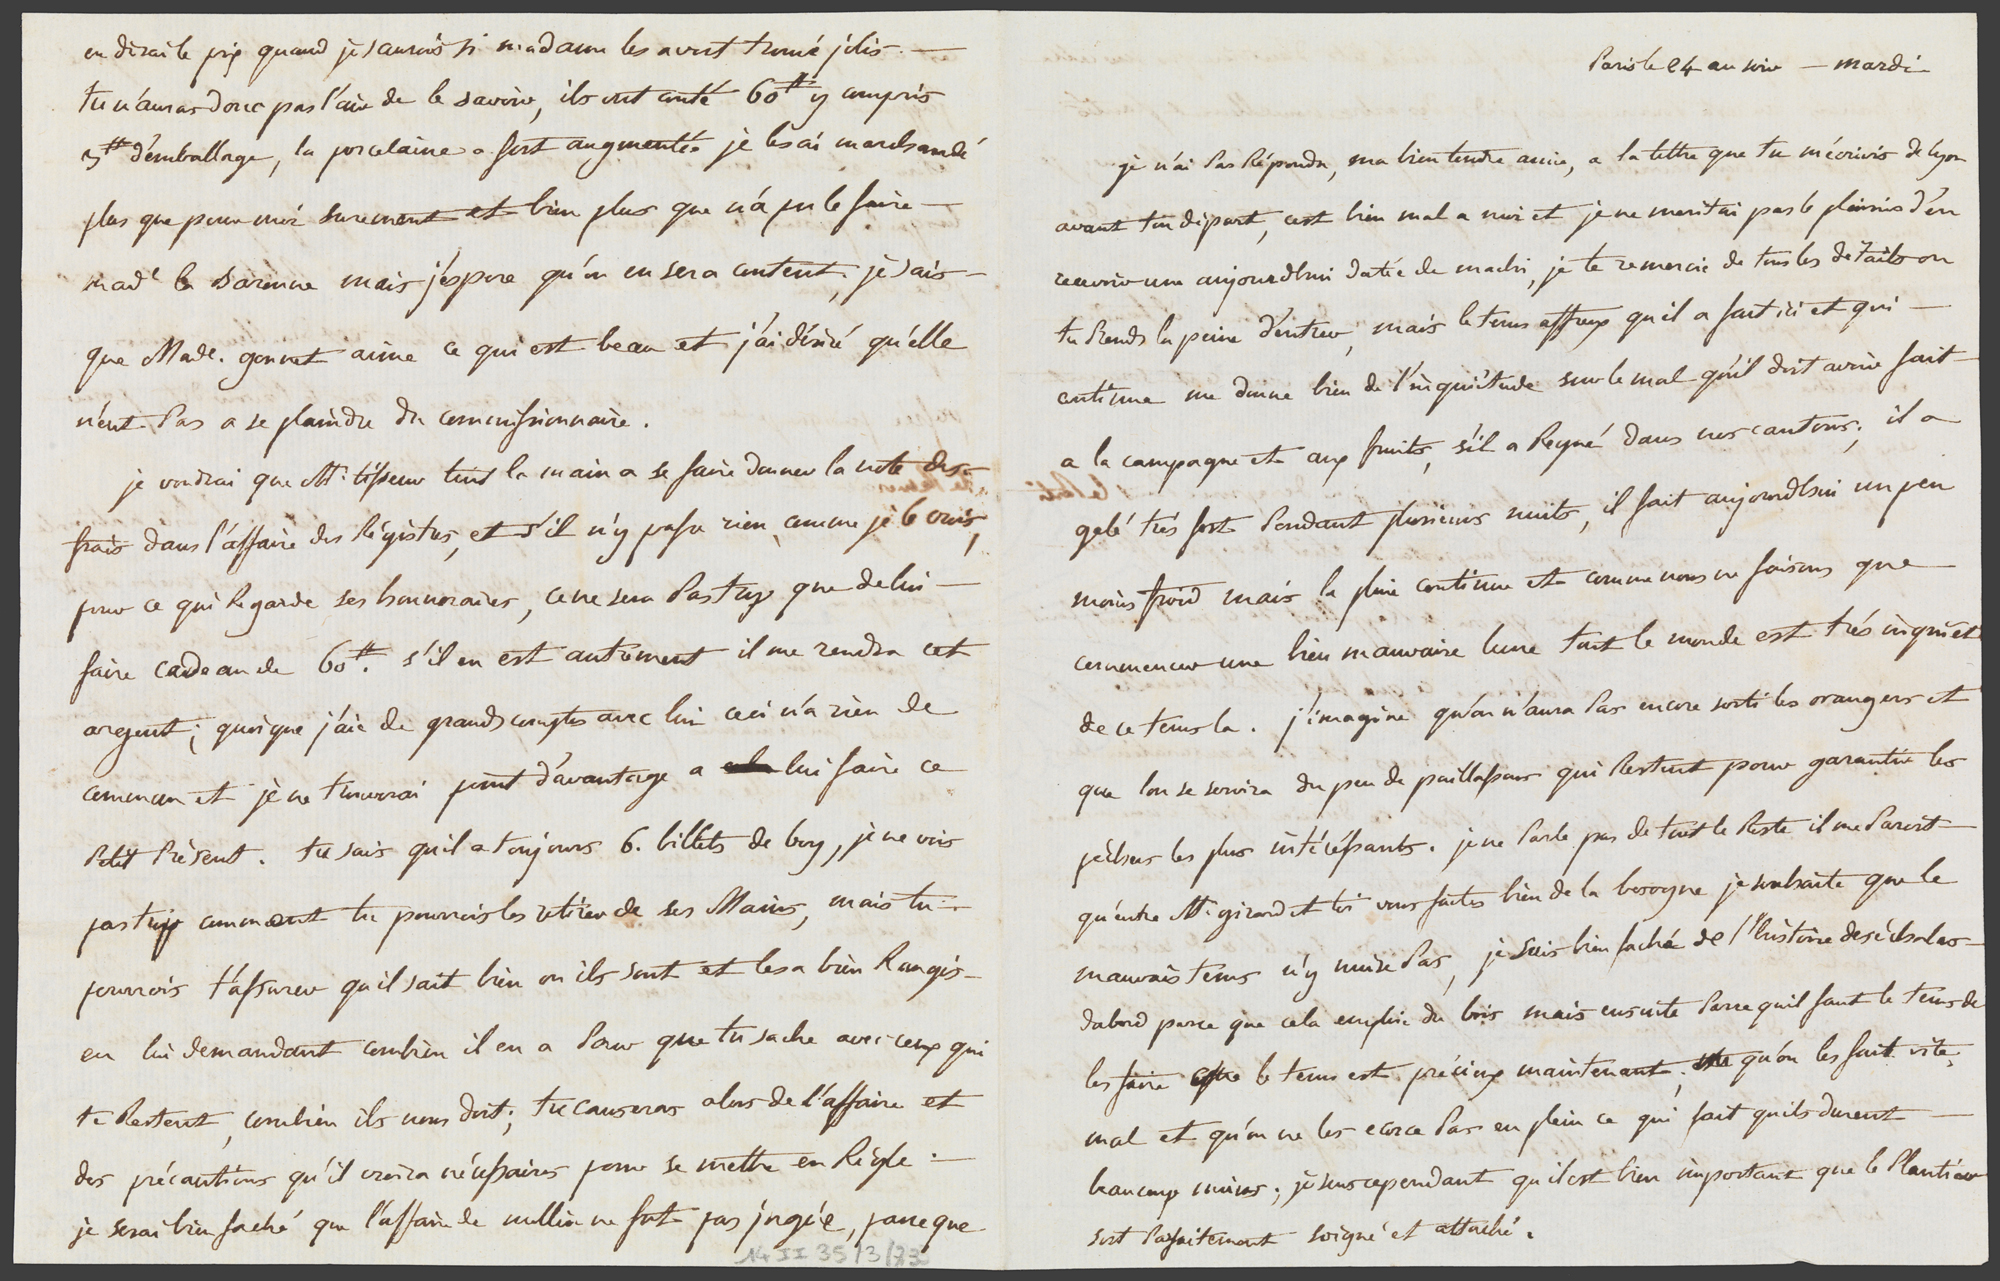 Paris le 24 au soir — mardi
je n'ai pas répondu, ma bien tendre amie, a la lettre que tu m'écrivis de lyon
avant ton départ, c'est bien mal a moi et je ne meritai pas le plaisir d'en
recevoir une aujourdhui datée de mardi, je te remercie de tous les détails ou
tu prends la peine d'entrer, mais le tems affreux qu'il a fait ici et qui —
continue me donne bien de l'inquiétude sur le mal qu'il doit avoir fait
a la campagne et aux fruits, s'il a regné dans nos cantons; il a
gelé trés fort pendant plusieurs nuits, il fait aujourdhui un peu
moins froid mais la pluie continue et comme nous ne faisons que
commencer une bien mauvaise lune tout le monde est trés inquiet
de ce tems la. j'imagine qu'on n'aura pas encore sorti les orangers et
que l'on se servira du peu de paillassons qui restent pour garantir les
pêchers les plus intéréssants. je ne parle pas de tout le reste il me paroit —
qu'entre Mr. girard et toi vous faites bien de la besogne je souhaite que le
mauvais tems n'y nuise pas, je suis bien faché de l'histoire des échalas —
dabord parce que cela emploie du bois mais ensuite parce quil faut le tems de
les faire que le tems est précieux maintenant, qu'on les fait vite,
mal et qu'on ne les ecorce pas en plein ce qui fait quils durent —
beaucoup moins; je sens cependant qu'il est bien important que le plantier
soit parfaitement soigné et attaché.
en dirai le prix quand je saurois si madame les avoit trouvé jolis. —
tu n'auras donc pas l'air de le savoir, ils ont couté 60# y compris
3# d'emballage, la porcelaine a fort augmentée je les ai marchandé
plus que pour moi surement et bien plus que n'a pu le faire —
made la baronne mais j'espere qu'on en sera content, je sais —
que Made. gonnet aime ce qui est beau et j'ai désiré qu'elle
n'eut pas a se plaindre du commissionnaire.
je voudrai que Mr. tisseur tint la main a se faire donner la note des
frais dans l'affaire des régistres, et s'il n'y passe rien, comme je le crois,
pour ce qui regarde ses honnoraires, ce ne sera pas trop que de lui —
faire cadeau de 60#. s'il en est autrement il me rendra cet
argent; quoique j'aie de grands comptes avec lui ceci n'a rien de
commun et je ne trouverai point d'avantage a lui faire ce
petit présent. tu sais qu'il a toujours 6. billets de boy, je ne vois
pas trop comment tu pourrois les retirer de ses Mains, mais tu —
pourrois t'assurer qu'il sait bien ou ils sont et les a bien rangés —
en lui demandant combien il en a pour que tu sache avec ceux qui
te restent, combien ils nous doit; tu causeras alors de l'affaire et
des précautions qu'il croira nécéssaires pour se mettre en régle. —
je serai bien faché que l'affaire de mullin ne fut pas jugée, parceque
14 II 35/3/73